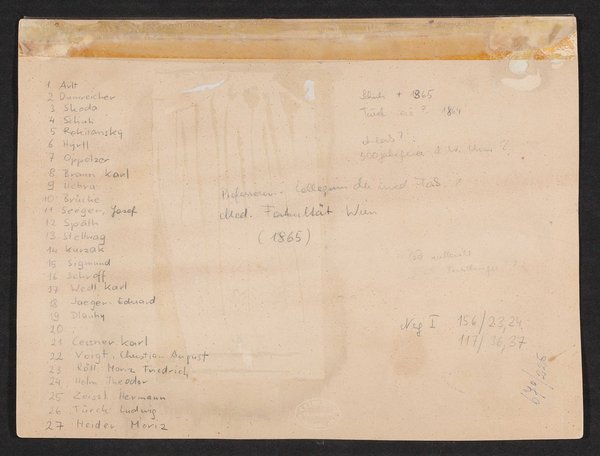 1 Arlt
2 Dumreicher
3 Skoda
4 Schuh
5 Rokitansky
6 Hyrtl
7 Oppolzer
8 Braun Karl
9 Hebra
10 Brücke
11 Seeger, Josef
12 Späth
13 Stellwag
14 Kurzak
15 Sigmund
16 Schroff
17 Wedl Karl
18 Jaeger Eduard
19 Dlauhy
20
21 Lessner Karl
22 Voigt, Christian August
23 Röll Moriz Friedrich
24 Helm Theodor
25 Zeissl Hermann
26 Türck Ludwig
27 Heider Moriz
Schuh + 1865
1864
500 Jahrfeier d. W. Univ ?
Professoren-Collegium der med. Fak.
Med. Fakultät Wien
(1865)
Neg I 156/23,24
117/36,37